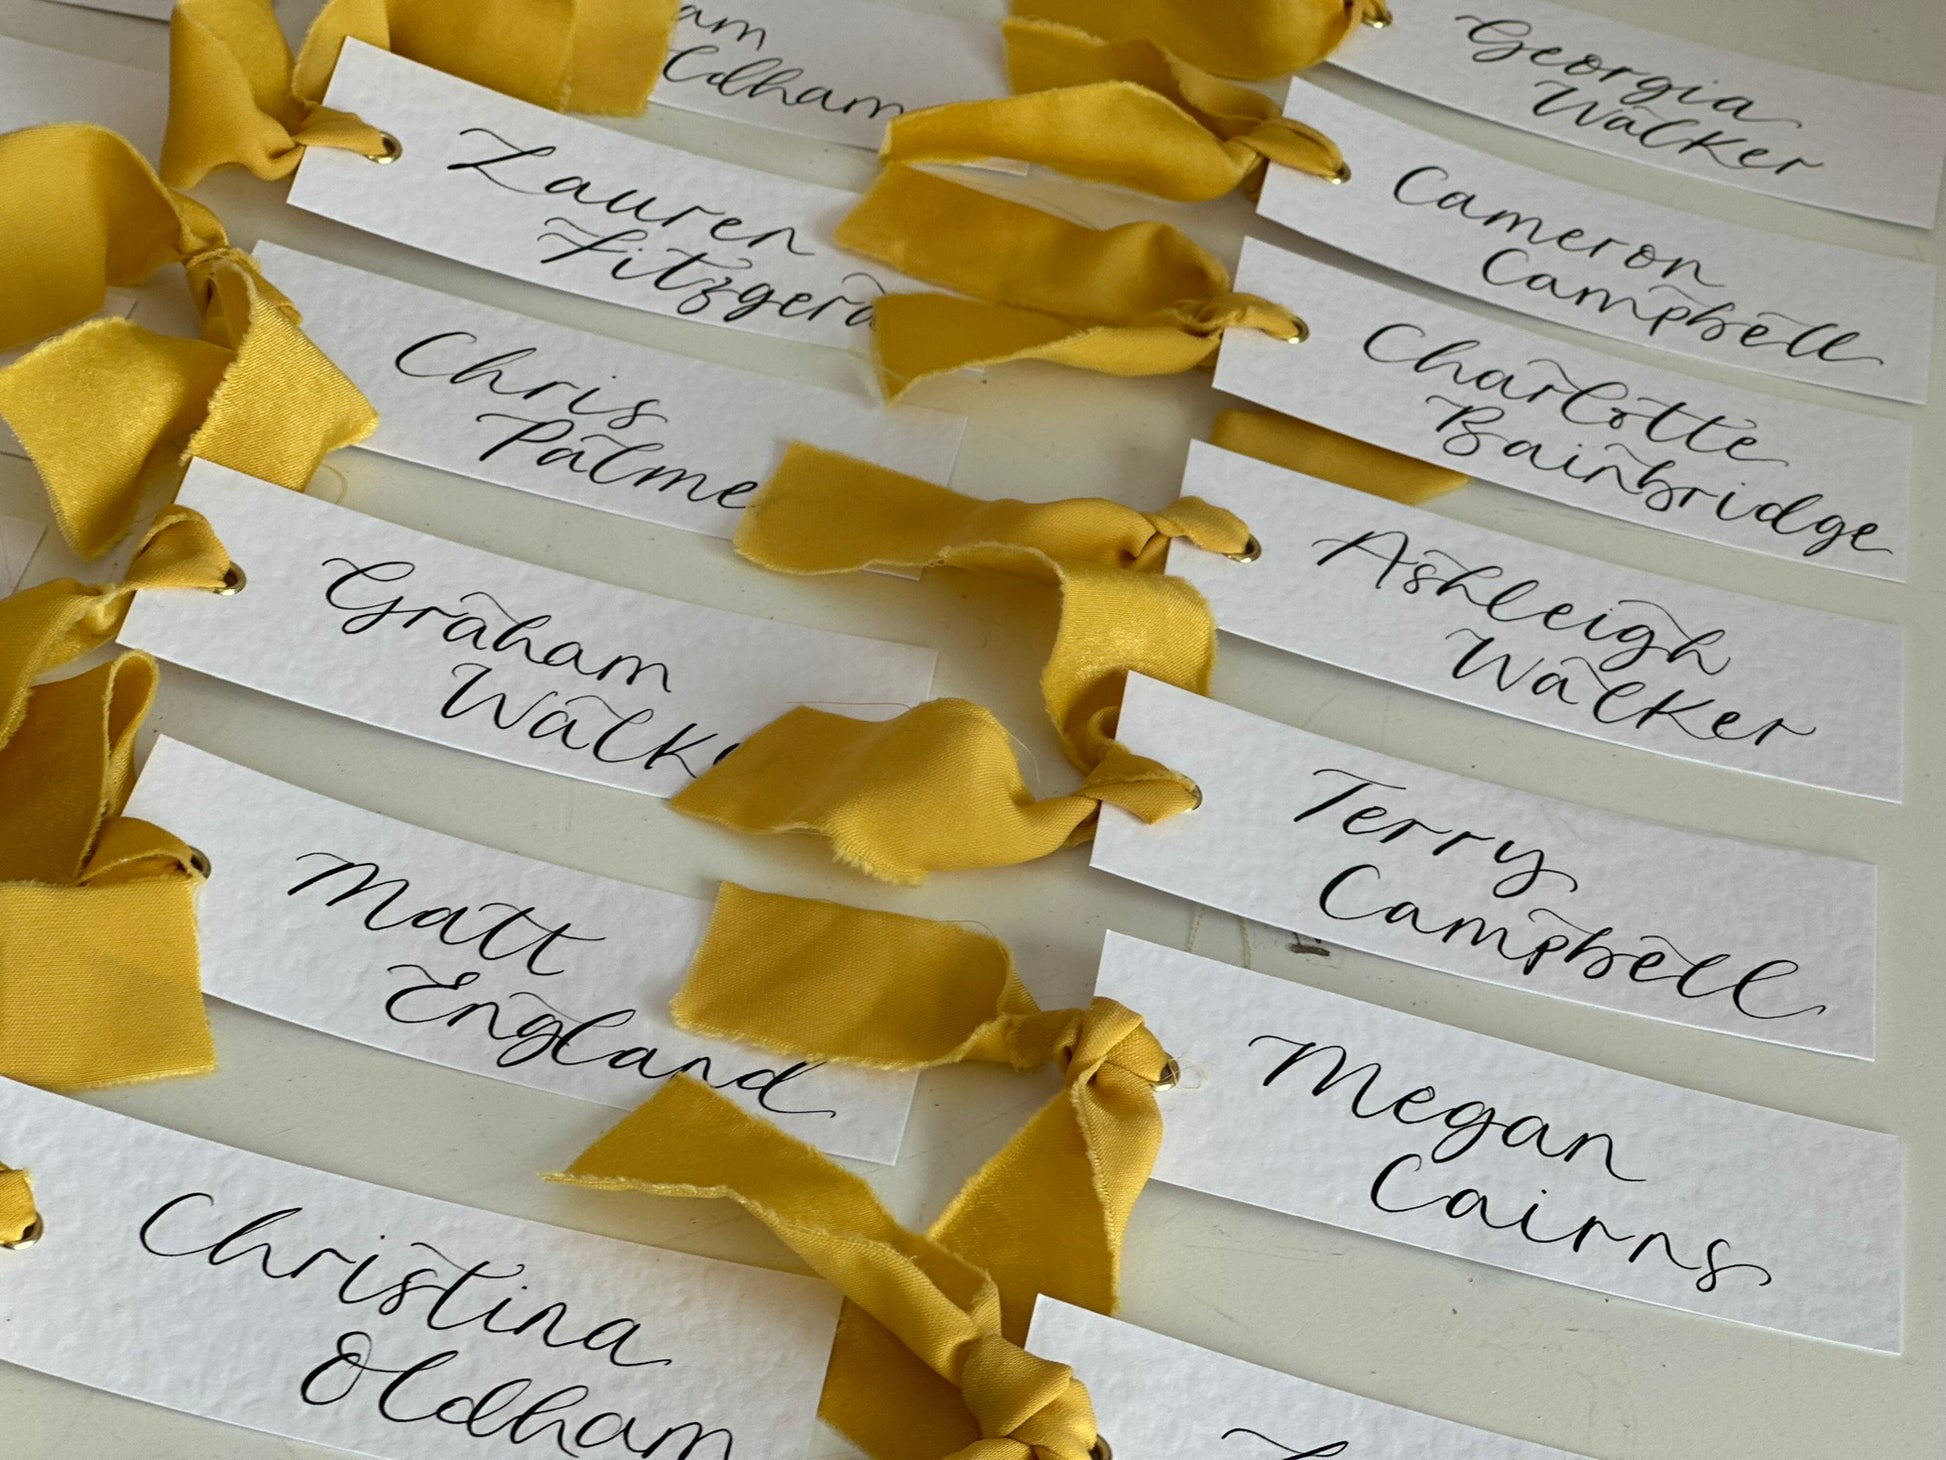 Oldham
Lauren
Fitzgera
Chris
Palme
Graham
Walke
Matt
England
Christina
Oldham
Georgia
Walker
Cameron
Campbell
Charlotte
Bainbridge
Ashleigh
Walker
Terry
Campbell
Megan
Cairns